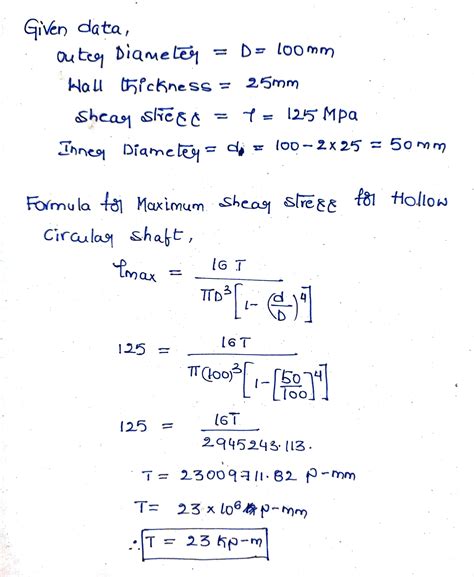 Given data,
outer Diameter = D = 100mm
Wall thickness = 25mm
Shear stress = τ = 125 MPa
Inner Diameter = d = 100 - 2×25 = 50mm
Formula for Maximum shear stress for Hollow
circular shaft,
τmax = 16 T / πD³[1-(d/D)⁴]
125 = 16T / π(100)³[1-[50/100]⁴]
125 = 16T / 2945243.113.
T = 23009711.82 N-mm
T = 23 × 10⁶ N-mm
∴ T = 23 KN-m